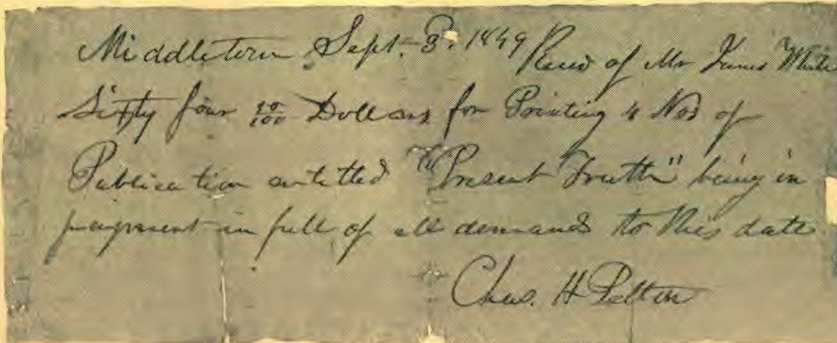 Middletown Sept. 3. 1849 Recd of Mr James White
Sixty four 50/100 Dollars for Printing 4 Nos of
Publication entitled "Present Truth" being in
payment in full of all demands to this date
Chas. H Pelton